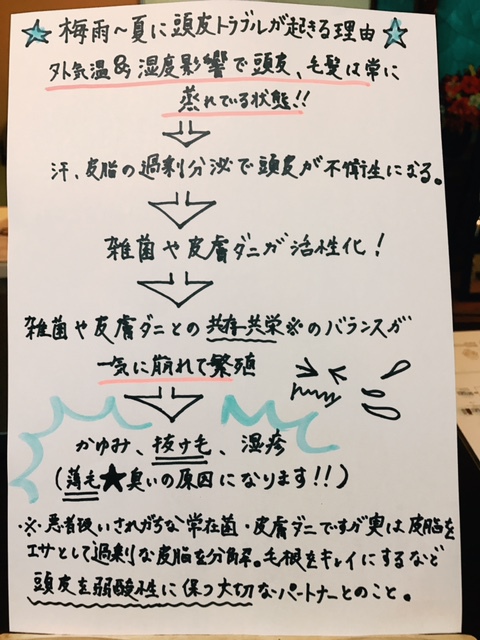 ☆梅雨～夏に頭皮トラブルが起きる理由☆
外気温&湿度影響で頭皮、毛髪は常に
蒸れている状態!!
汗、皮脂の過剰分泌で頭皮が不衛生になる。
雑菌や皮膚ダニが活性化!
雑菌や皮膚ダニとの共存共栄※のバランスが
一気に崩れて繁殖
かゆみ、抜け毛、湿疹
(薄毛★臭いの原因になります!!)
・※・悪者扱いされがちな常在菌・皮膚ダニですが実は皮脂を
エサとして過剰な皮脂を分解。毛根をキレイにするなど
頭皮を弱酸性に保つ大切なパートナーとのこと。